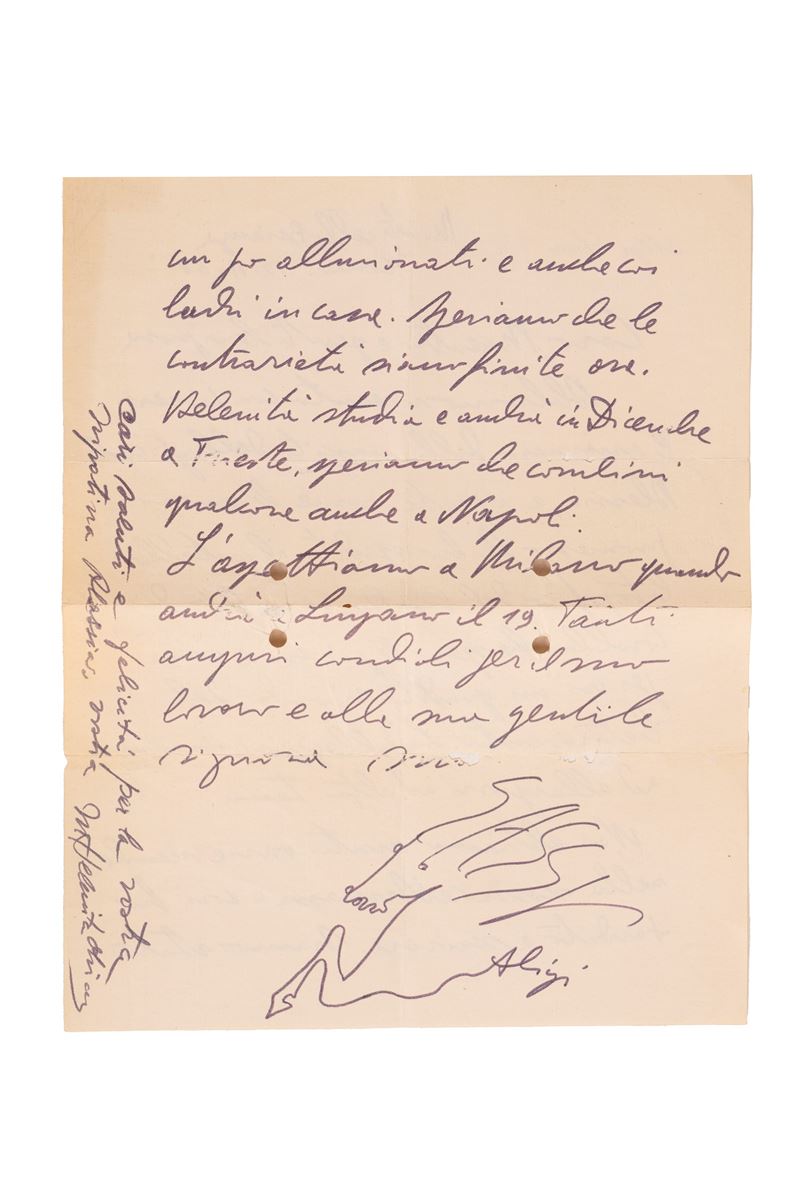 un po alluvionati e anche coi
ladri in casa. Speriamo che le
contrarietà siano finite ora.
Helenita studia e andrà in Dicembre
a Trieste, speriamo che combini
qualcosa anche a Napoli.
L'aspettiamo a Milano quando
andrà a Lugano il 19. Tanti
auguri cordiali per il suo
lavoro e alla sua gentile
signora suo
Aligi
Sassu
Cari saluti e felicità per la vostra
nipotina Alessia, vostra Helenita Olivares